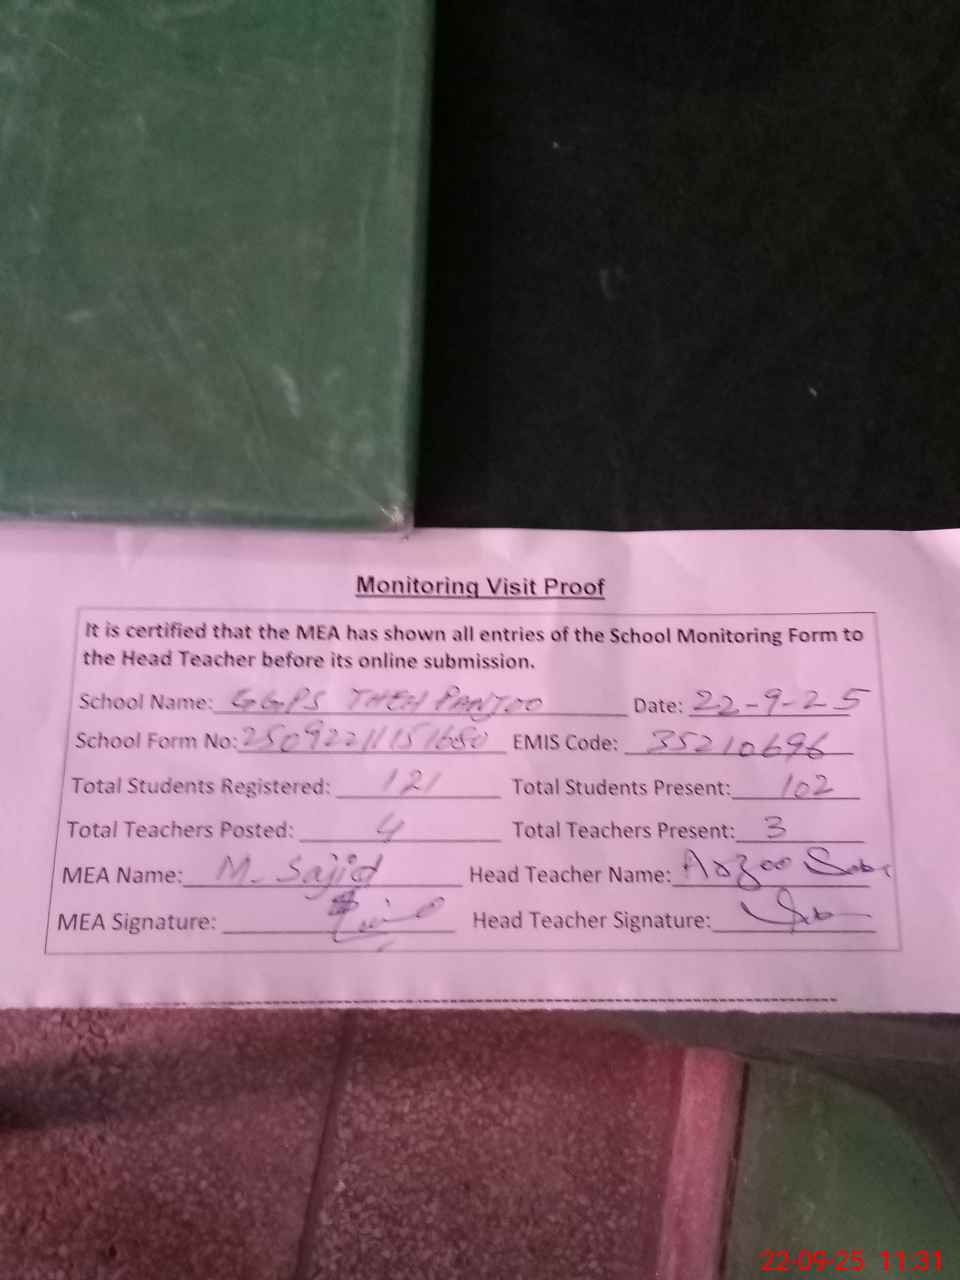 Monitoring Visit Proof
It is certified that the MEA has shown all entries of the School Monitoring Form to
the Head Teacher before its online submission.
School Name: GGPS THEH PANJOO Date: 22-9-25
School Form No: 25092211151680 EMIS Code: 35210696
Total Students Registered: 121 Total Students Present: 102
Total Teachers Posted: 4 Total Teachers Present: 3
MEA Name: M. Sajid Head Teacher Name: Arzoo
MEA Signature: Head Teacher Signature:
22-09-25 11:31